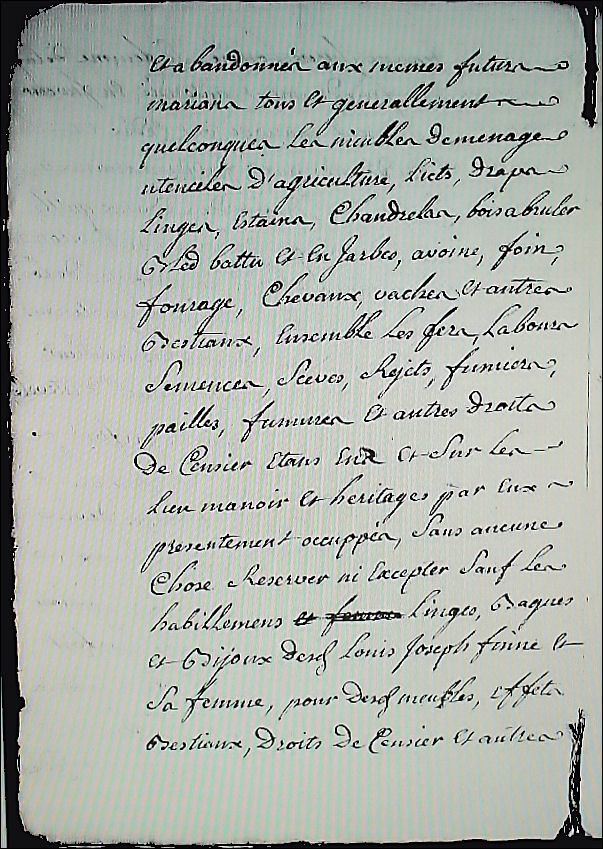 et abandonnés aux memes futurs
marians tous et generallement
quelconques les meubles de menage
utenciles d'agriculture, licts, draps
linges, Estains, Chandrelas, bois a bruler
Bled battu et en Jarbes, avoine, foin,
fourage, Chevaux, vaches et autres
Bestiaux, Ensemble les fers, labours
Semences, Seeves, Rejets, fumiers,
pailles, fumures et autres droits
de Censier Etans en et sur les
lieu manoir et heritages par eux
presentement occuppés, Sans aucune
Chose Reserver ni Excepter Sauf les
habillemens et femmes linges, Bagues
et Bijoux desd Louis Joseph finne et
Sa femme, pour desd meubles, effets
Bestiaux, Droits de Censier et autres